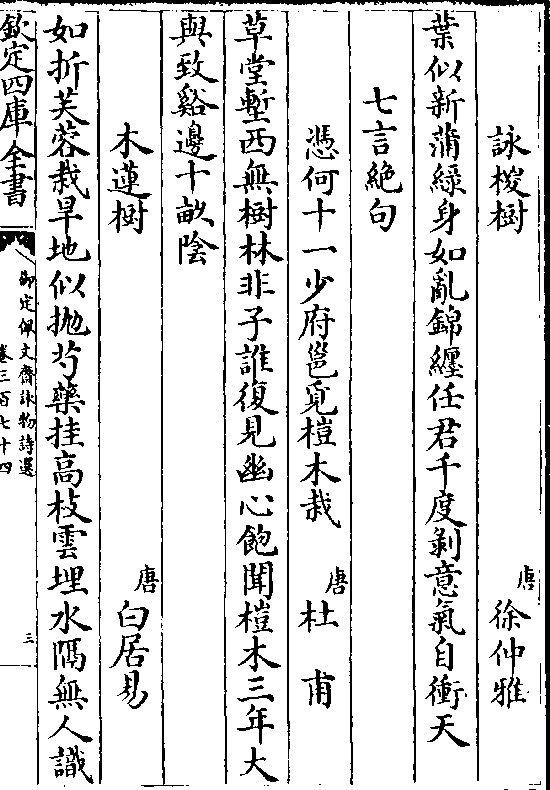 詠椶樹 唐 徐仲雅
葉似新蒲綠身如亂錦纏任君千度剝意氣自衝天
七言絶句
憑何十一少府邕覓榿木栽 唐 杜甫
草堂塹西無樹林非子誰復見幽心飽聞榿木三年大
與致谿邊十畝陰
木蓮樹 唐 白居易
如折芙蓉栽旱地似抛芍藥挂高枝雲埋水隔無人識
欽定四庫全書
御定佩文齋詠物詩選
卷三百七十四
三